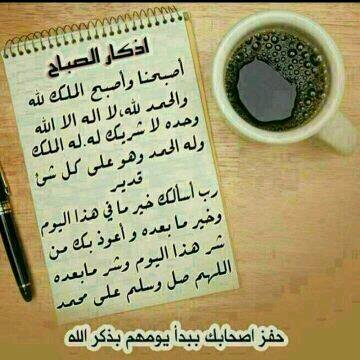 اذكار الصباح
أصبحنا وأصبح الملك لله
والحمد لله، لا اله الا الله
وحده لا شريك له.له الملك
وله الحمد وهو على كل شئ
قدير
رب أسألك خير ما في هذا اليوم
وخير ما بعده و أعوذ بك من
شر هذا اليوم وشر مابعده
اللهم صل وسلم على محمد
حفز أصحابك ببدأ يومهم بذكر الله